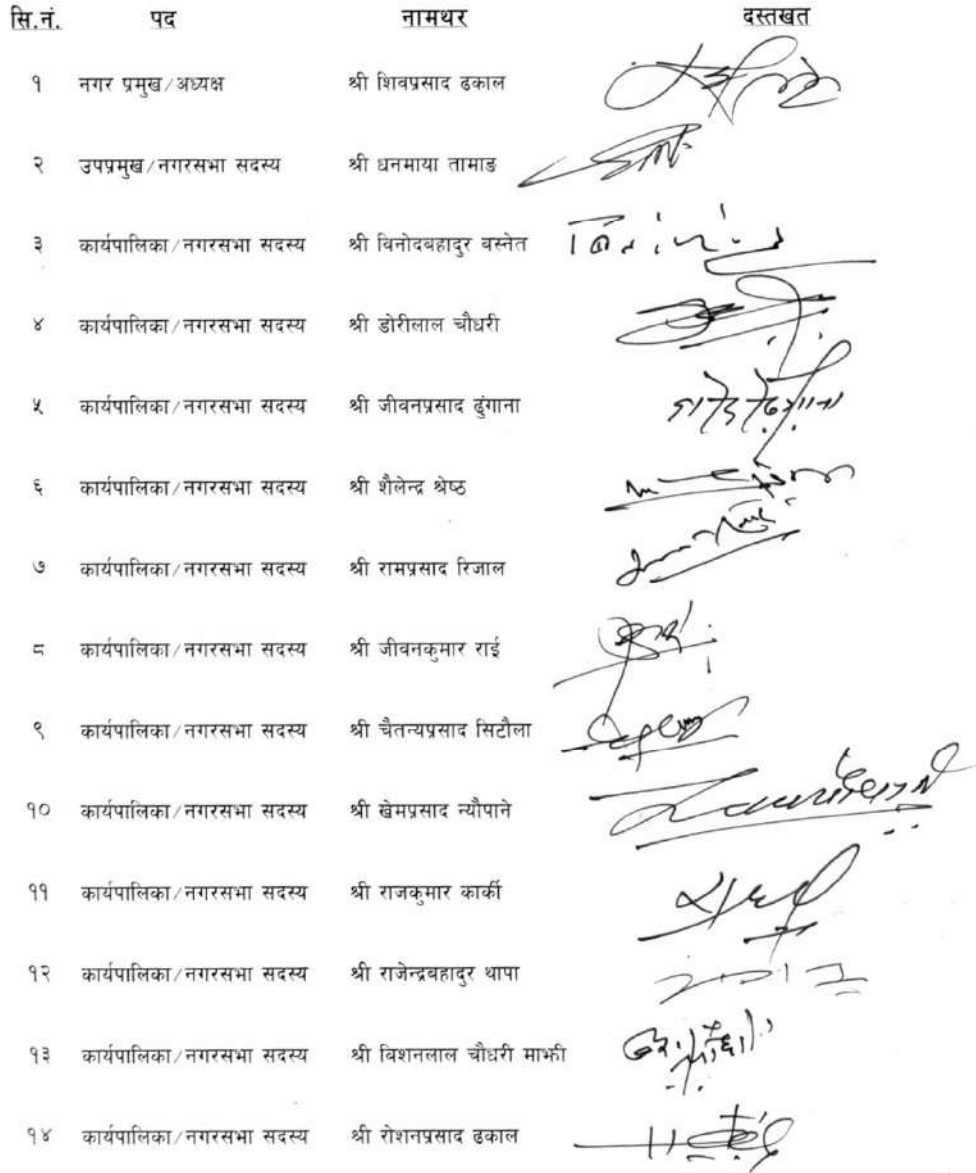 सि.नं. पद नामथर दस्तखत
१ नगर प्रमुख/अध्यक्ष श्री शिवप्रसाद ढकाल
२ उपप्रमुख/नगरसभा सदस्य श्री धनमाया तामाङ
३ कार्यपालिका/नगरसभा सदस्य श्री विनोदबहादुर बस्नेत
४ कार्यपालिका/नगरसभा सदस्य श्री डोरीलाल चौधरी
५ कार्यपालिका/नगरसभा सदस्य श्री जीवनप्रसाद ढुंगाना
६ कार्यपालिका/नगरसभा सदस्य श्री शैलेन्द्र श्रेष्ठ
७ कार्यपालिका/नगरसभा सदस्य श्री रामप्रसाद रिजाल
८ कार्यपालिका/नगरसभा सदस्य श्री जीवनकुमार राई
९ कार्यपालिका/नगरसभा सदस्य श्री चैतन्यप्रसाद सिटौला
१० कार्यपालिका/नगरसभा सदस्य श्री खेमप्रसाद न्यौपाने
११ कार्यपालिका/नगरसभा सदस्य श्री राजकुमार कार्की
१२ कार्यपालिका/नगरसभा सदस्य श्री राजेन्द्रबहादुर थापा
१३ कार्यपालिका/नगरसभा सदस्य श्री बिशनलाल चौधरी माझी
१४ कार्यपालिका/नगरसभा सदस्य श्री रोशनप्रसाद ढकाल